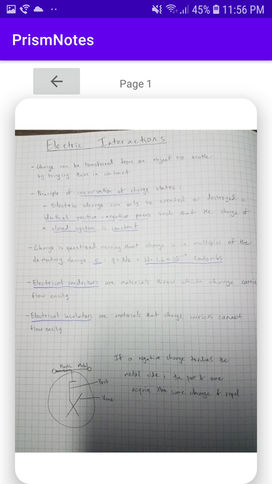 11:56 PM
45%
PrismNotes
Page 1
Electric Interactions
- Charge can be transferred from an object to another
by bringing them in contact
- Principle of conservation of charge states:
• Electric charge can only be created or destroyed in
identical positive-negative pairs such that the charge of
a closed system is constant
- Charge is quantized meaning that charge is in multiples of the
elementary charge
- Electrical conductors are materials through which charge
flow easily
- Electrical insulators are materials that charge carriers cannot
flow easily
Metal
If a negative charge touches the
metal side, the post &
acquire the same charge & repel
Post